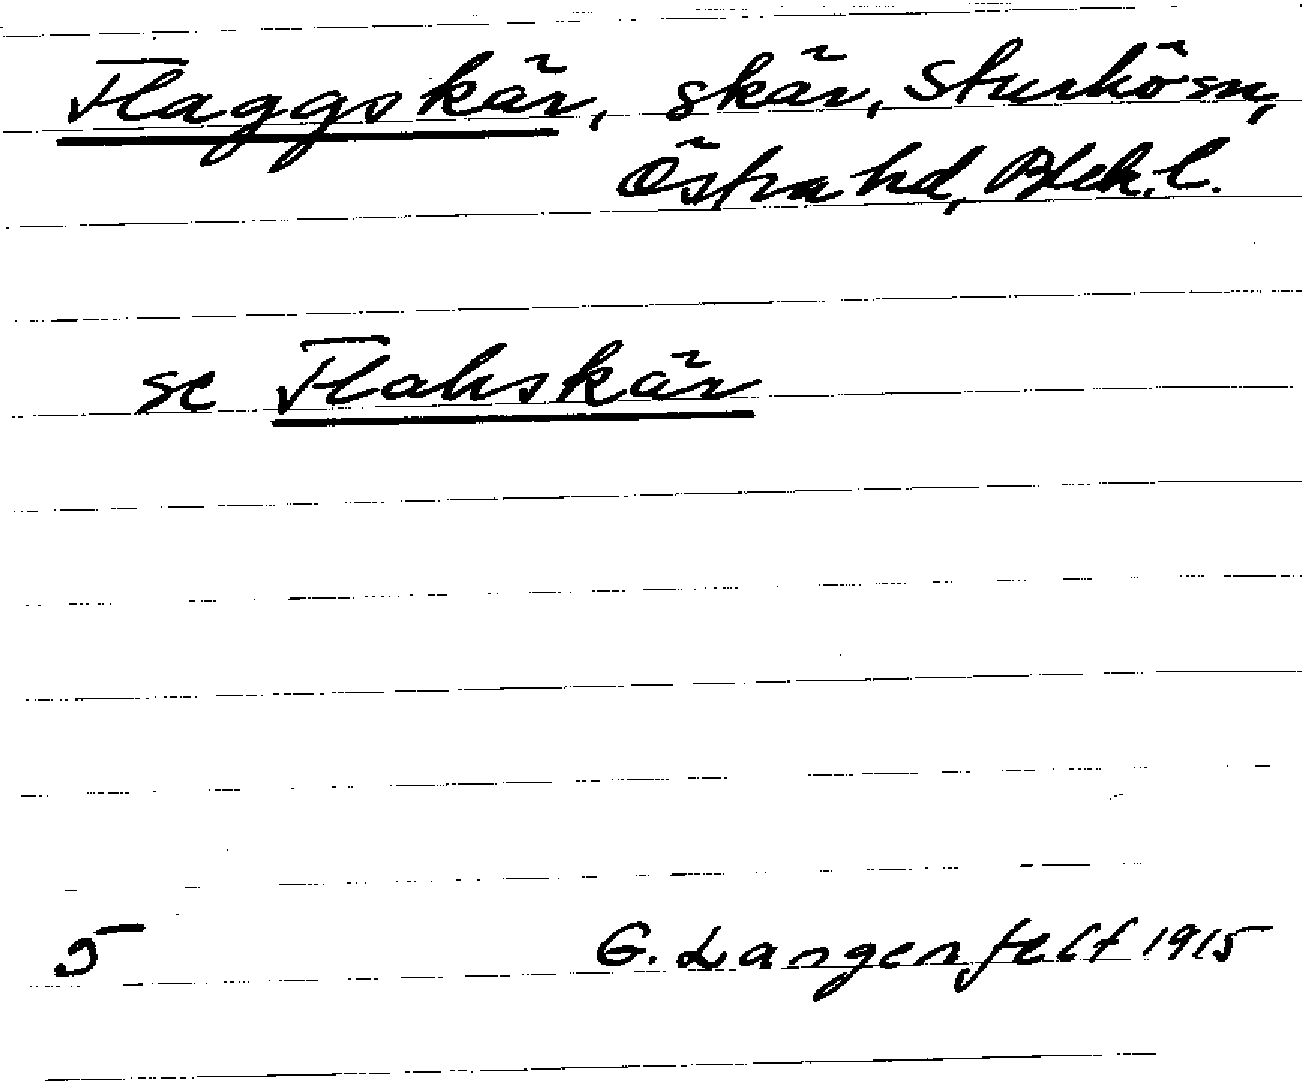 Flaggskär, skär, Sturkö sn,
Östra hd, Blek. l.
se Flakskär
5 G. Langenfelt 1915